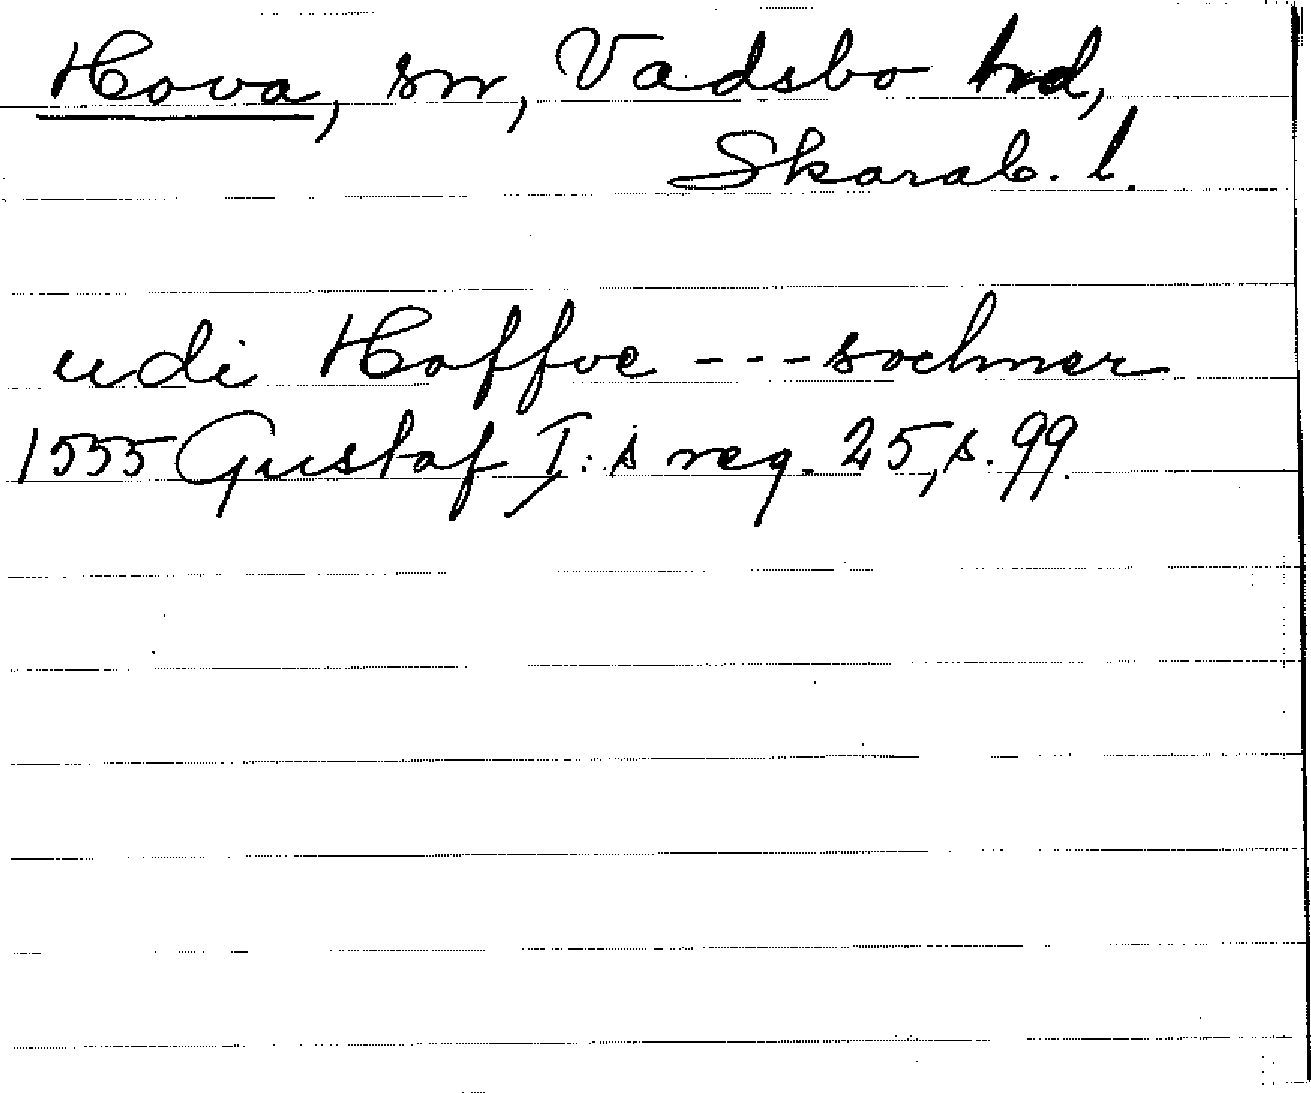 Hova, sn, Vadsbo hd,
Skarab. l.
udi Hoffve --- sochner
1555 Gustaf I:s reg. 25, s. 99.